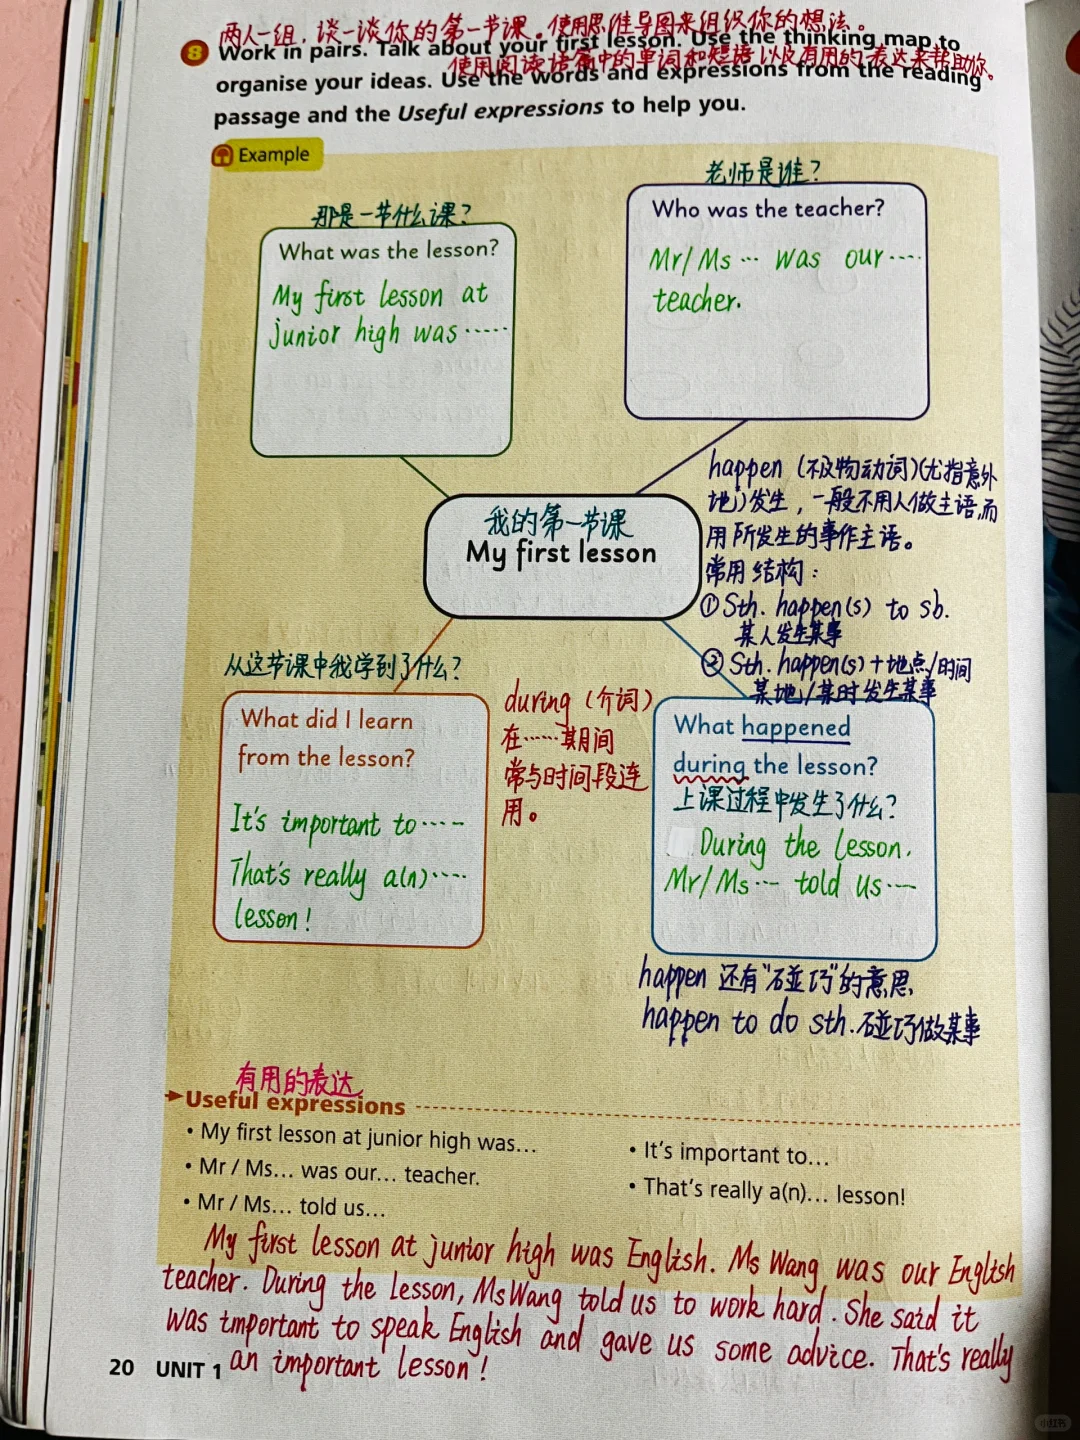 两人一组，谈一谈你的第一节课。使用思维导图来组织你的想法。
8 Work in pairs. Talk about your first lesson. Use the thinking map to
使用阅读语篇中的单词和短语以及有用的表达来帮助你。
organise your ideas. Use the words and expressions from the reading
passage and the Useful expressions to help you.
Example
那是一节什么课？
What was the lesson?
My first lesson at
junior high was ······
老师是谁？
Who was the teacher?
Mr/Ms ··· was our ····
teacher.
happen (不及物动词)(尤指意外
地)发生，一般不用人做主语，而
用所发生的事作主语。
常用结构：
① Sth. happen(s) to sb.
某人发生某事
② Sth. happen(s)+地点/时间
某地/某时发生某事
我的第一节课
My first lesson
从这节课中我学到了什么？
What did I learn
from the lesson?
It's important to ····
That's really a(n) ····
lesson!
during (介词)
在······期间
常与时间段连
用。
What happened
during the lesson?
上课过程中发生了什么？
During the lesson,
Mr/Ms ··· told us ···
happen 还有“碰巧”的意思
happen to do sth. 碰巧做某事
有用的表达
Useful expressions
• My first lesson at junior high was...
• Mr / Ms... was our... teacher.
• Mr / Ms... told us...
• It's important to...
• That's really a(n)... lesson!
My first lesson at junior high was English. Ms Wang was our English
teacher. During the lesson, Ms Wang told us to work hard. She said it
was important to speak English and gave us some advice. That's really
an important lesson!
20 UNIT 1
小红书